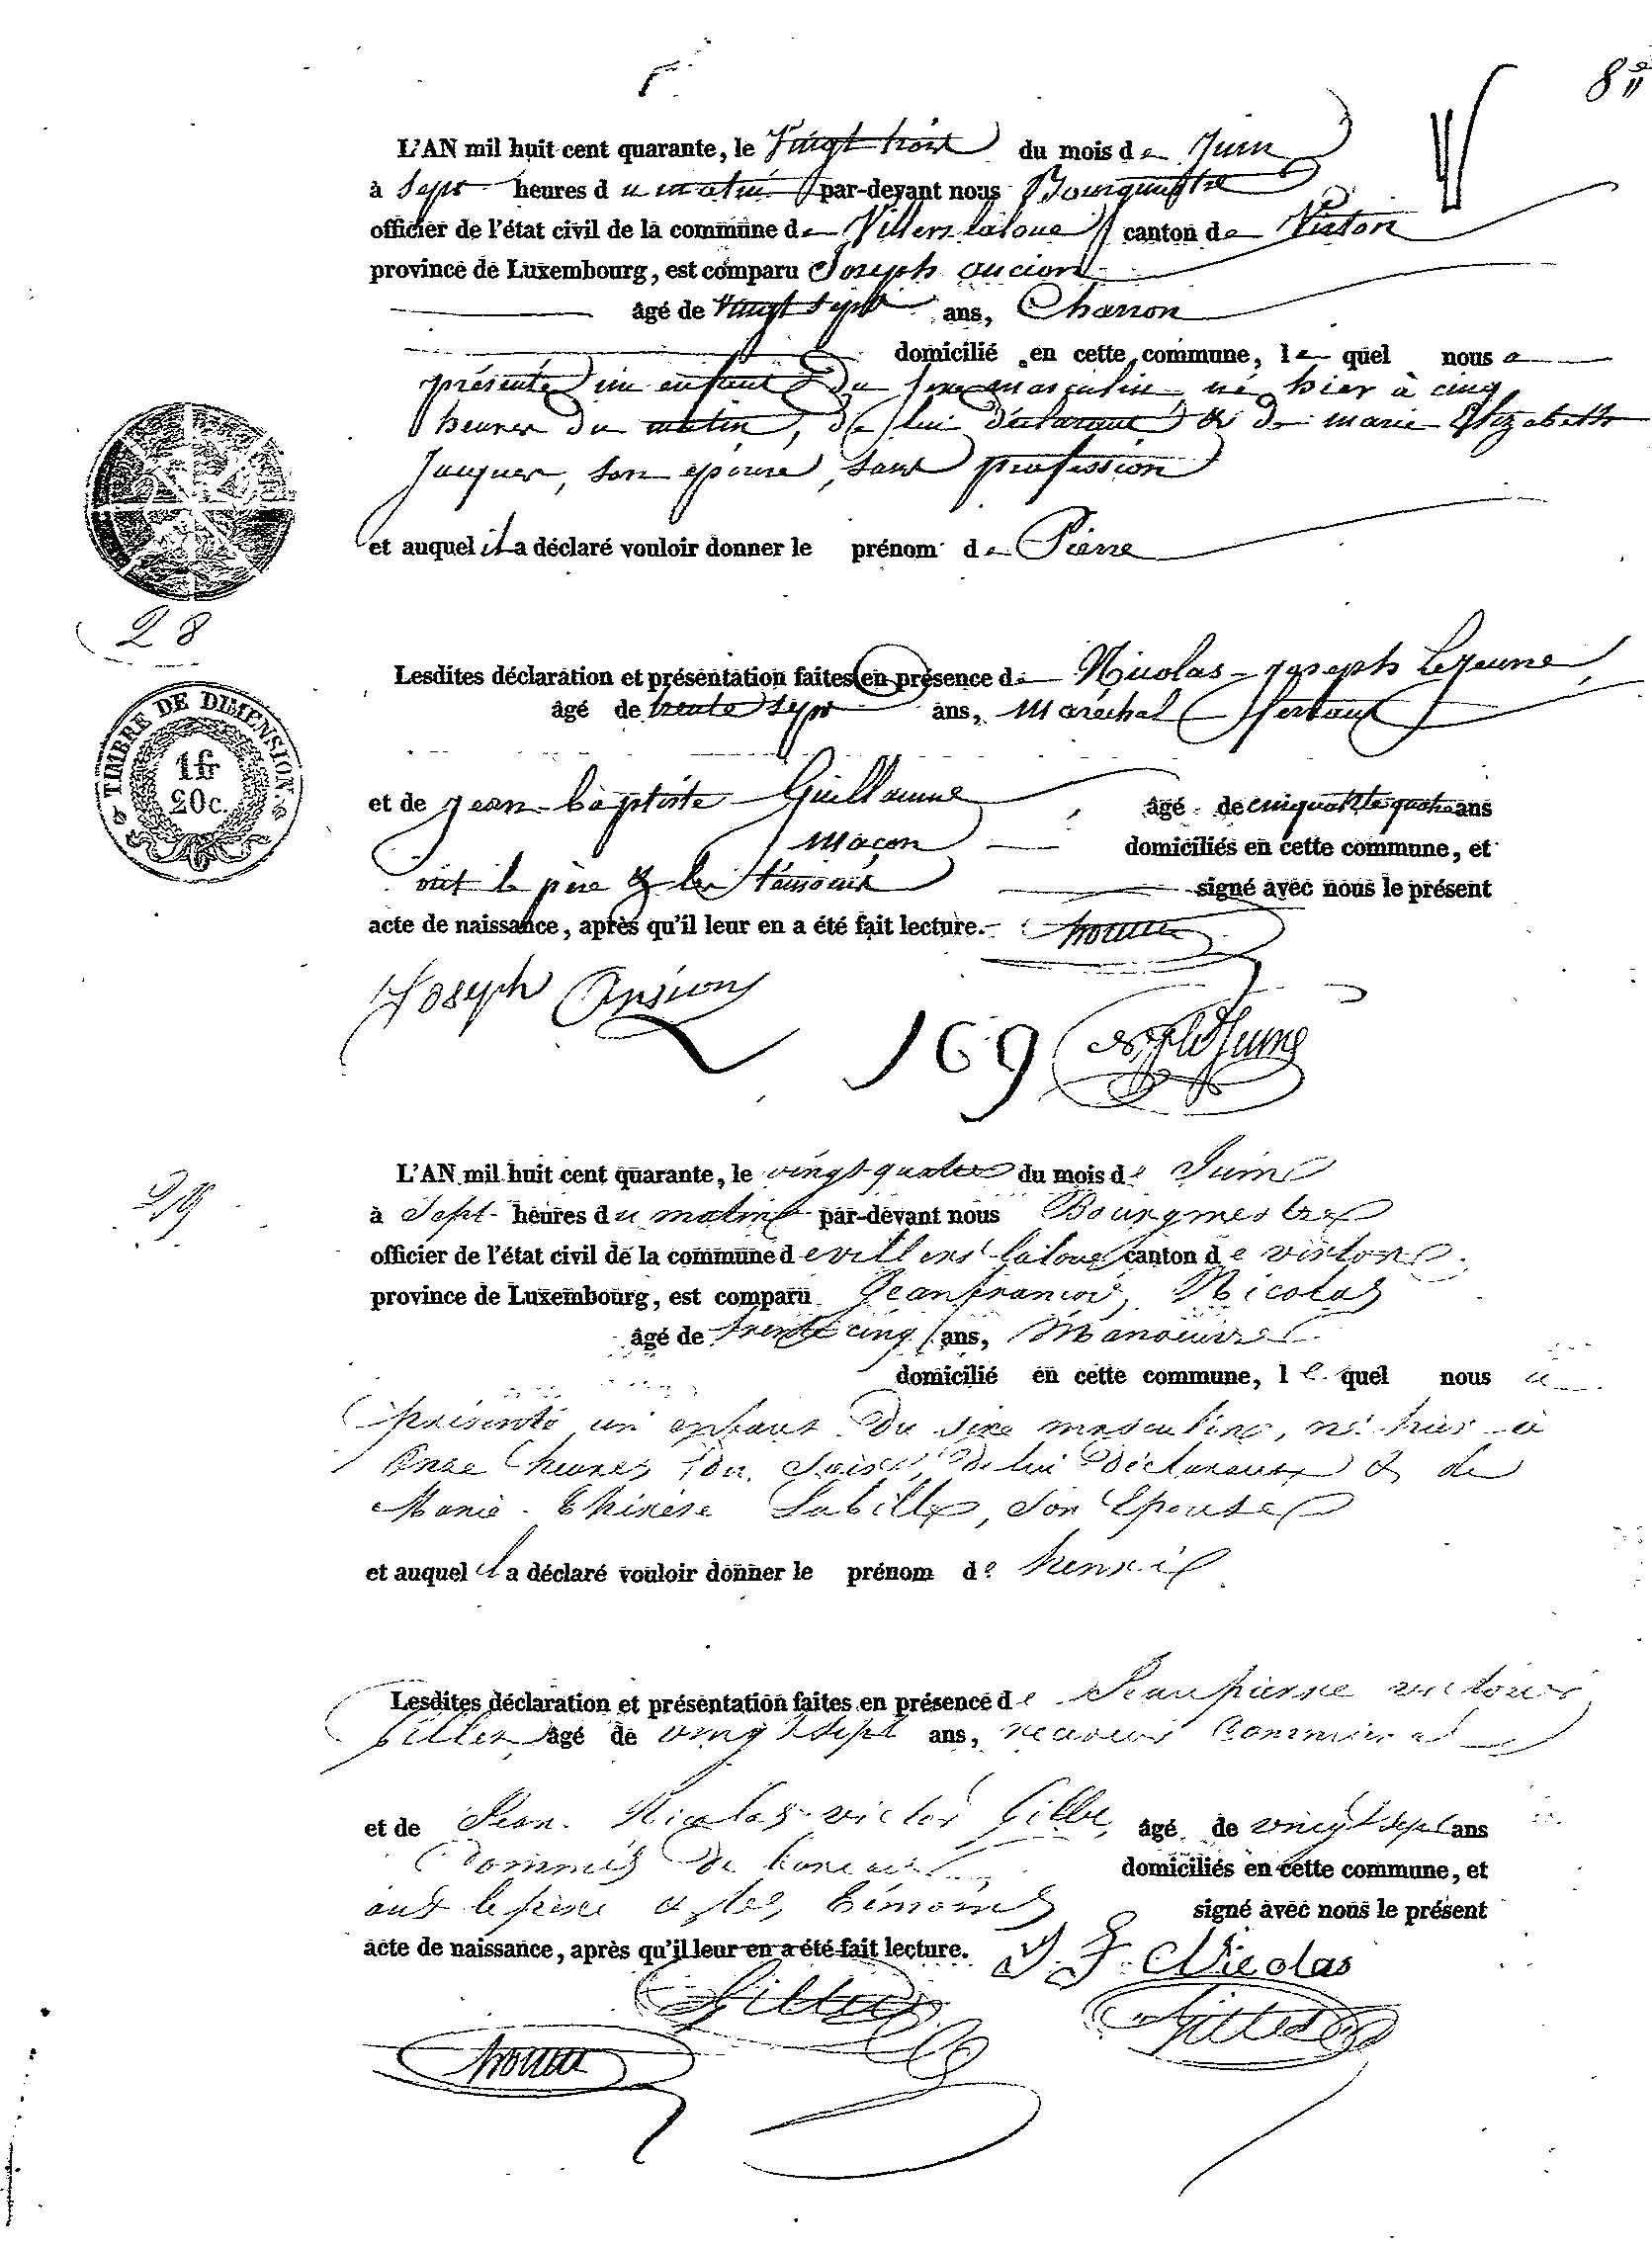 8
L'AN mil huit cent quarante, le Vingt trois du mois de Juin
à Sept heures du matin par-devant nous Bourguestre
officier de l'état civil de la commune de Villers latoue canton de Virton
province de Luxembourg, est comparu Joseph ancion
âgé de vingt sept ans, Charron
domicilié en cette commune, le quel nous a
présenté un enfant du sexe masculin né hier à cinq
heures du matin, de lui déclarant & de marie Elizabeth
Jacques, son épouse, sans profession
et auquel il a déclaré vouloir donner le prénom de Pierre
28
Lesdites déclaration et présentation faites en présence de Nicolas-Joseph Lejeune,
âgé de trente sept ans, Maréchal ferrant
TIMBRE DE DIMENSION.
1 fr
20c.
et de jean-baptiste Guillaume âgé de cinquante quatre ans
Maçon domiciliés en cette commune, et
ont le père & les témoins signé avec nous le présent
acte de naissance, après qu'il leur en a été fait lecture.
Joseph Ansion
169
29
L'AN mil huit cent quarante, le vingt quatre du mois de Juin
à Sept heures du matin par-devant nous Bourgmestre
officier de l'état civil de la commune de villers latoue canton de virton
province de Luxembourg, est comparu Jeanfrancois Nicolas
âgé de trente cinq ans, Manoeuvre
domicilié en cette commune, le quel nous a
présenté un enfant du sexe masculin, né hier à
Onze heures du Soir, de lui Déclarant & de
Marie-Thérèse Labille, Son Epouse
et auquel il a déclaré vouloir donner le prénom de henri
Lesdites déclaration et présentation faites en présence de Jeanpierre
Gilles âgé de vingt sept ans, receveur Communal
et de Jean Nicolas victor Gille, âgé de vingt sept ans
domiciliés en cette commune, et
ont le père & les témoins signé avec nous le présent
acte de naissance, après qu'il leur en a été fait lecture.
J. F. Nicolas
Gilles